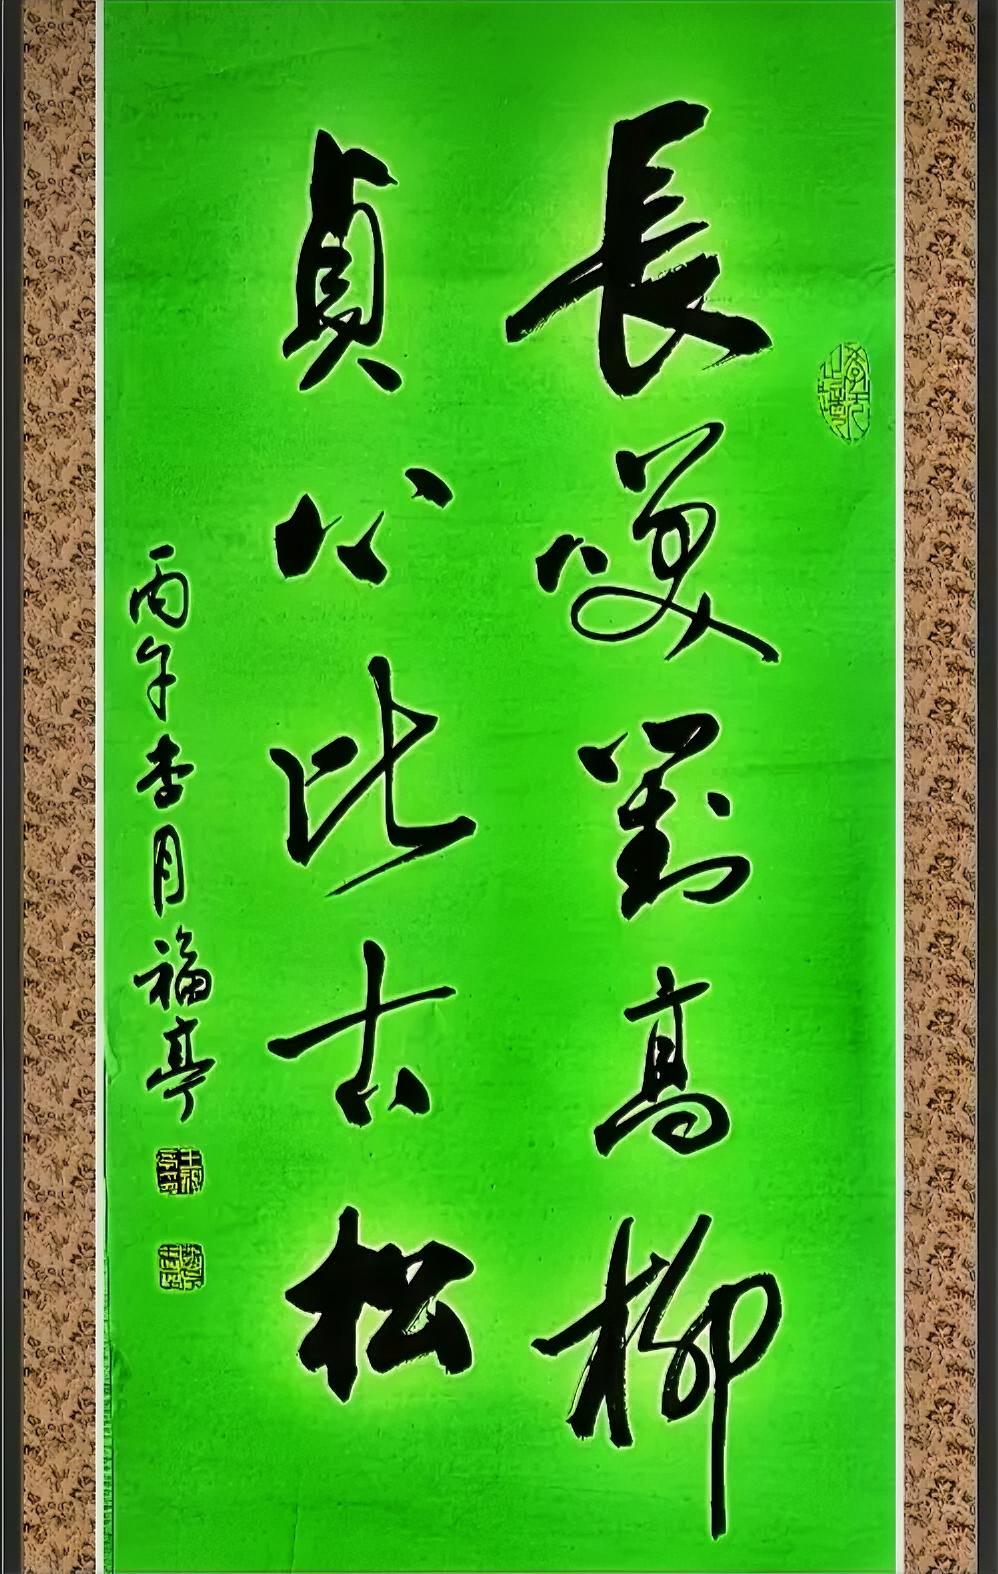 長嘯對高柳
貞心比古松
丙午杏月福亭